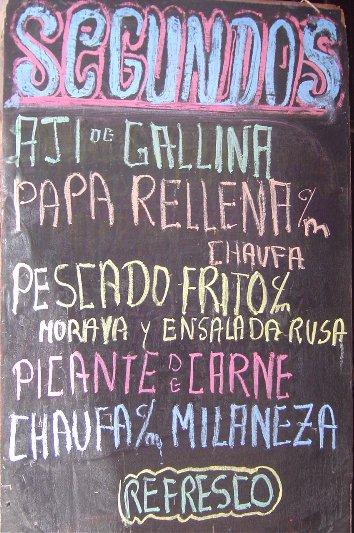 SEGUNDOS
AJI DE GALLINA
PAPA RELLENA c/m
CHAUFA
PESCADO FRITO c/m
MORAYA Y ENSALADA RUSA
PICANTE DE CARNE
CHAUFA c/m MILANEZA
REFRESCO